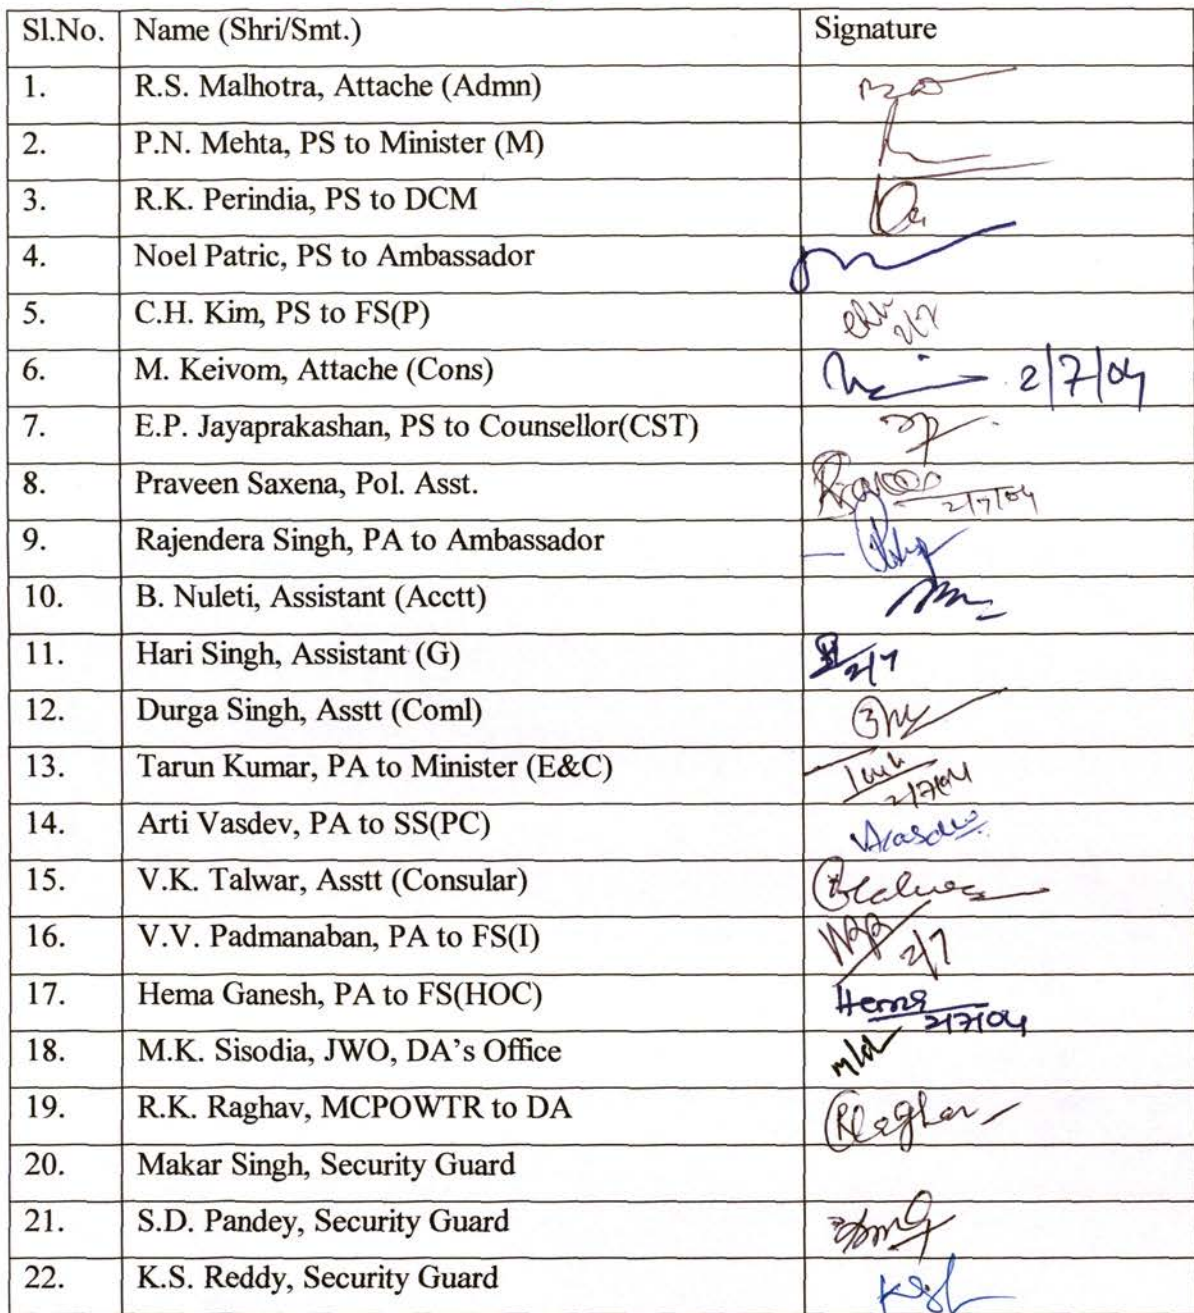 Sl.No. Name (Shri/Smt.) Signature
1. R.S. Malhotra, Attache (Admn)
2. P.N. Mehta, PS to Minister (M)
3. R.K. Perindia, PS to DCM
4. Noel Patric, PS to Ambassador
5. C.H. Kim, PS to FS(P) 2/7
6. M. Keivom, Attache (Cons) 2/7/04
7. E.P. Jayaprakashan, PS to Counsellor(CST)
8. Praveen Saxena, Pol. Asst. 2/7/04
9. Rajendera Singh, PA to Ambassador
10. B. Nuleti, Assistant (Acctt)
11. Hari Singh, Assistant (G) 2/7
12. Durga Singh, Asstt (Coml)
13. Tarun Kumar, PA to Minister (E&C) 2/7/04
14. Arti Vasdev, PA to SS(PC)
15. V.K. Talwar, Asstt (Consular)
16. V.V. Padmanaban, PA to FS(I) 2/7
17. Hema Ganesh, PA to FS(HOC) Hema 2/7/04
18. M.K. Sisodia, JWO, DA's Office
19. R.K. Raghav, MCPOWTR to DA
20. Makar Singh, Security Guard
21. S.D. Pandey, Security Guard
22. K.S. Reddy, Security Guard